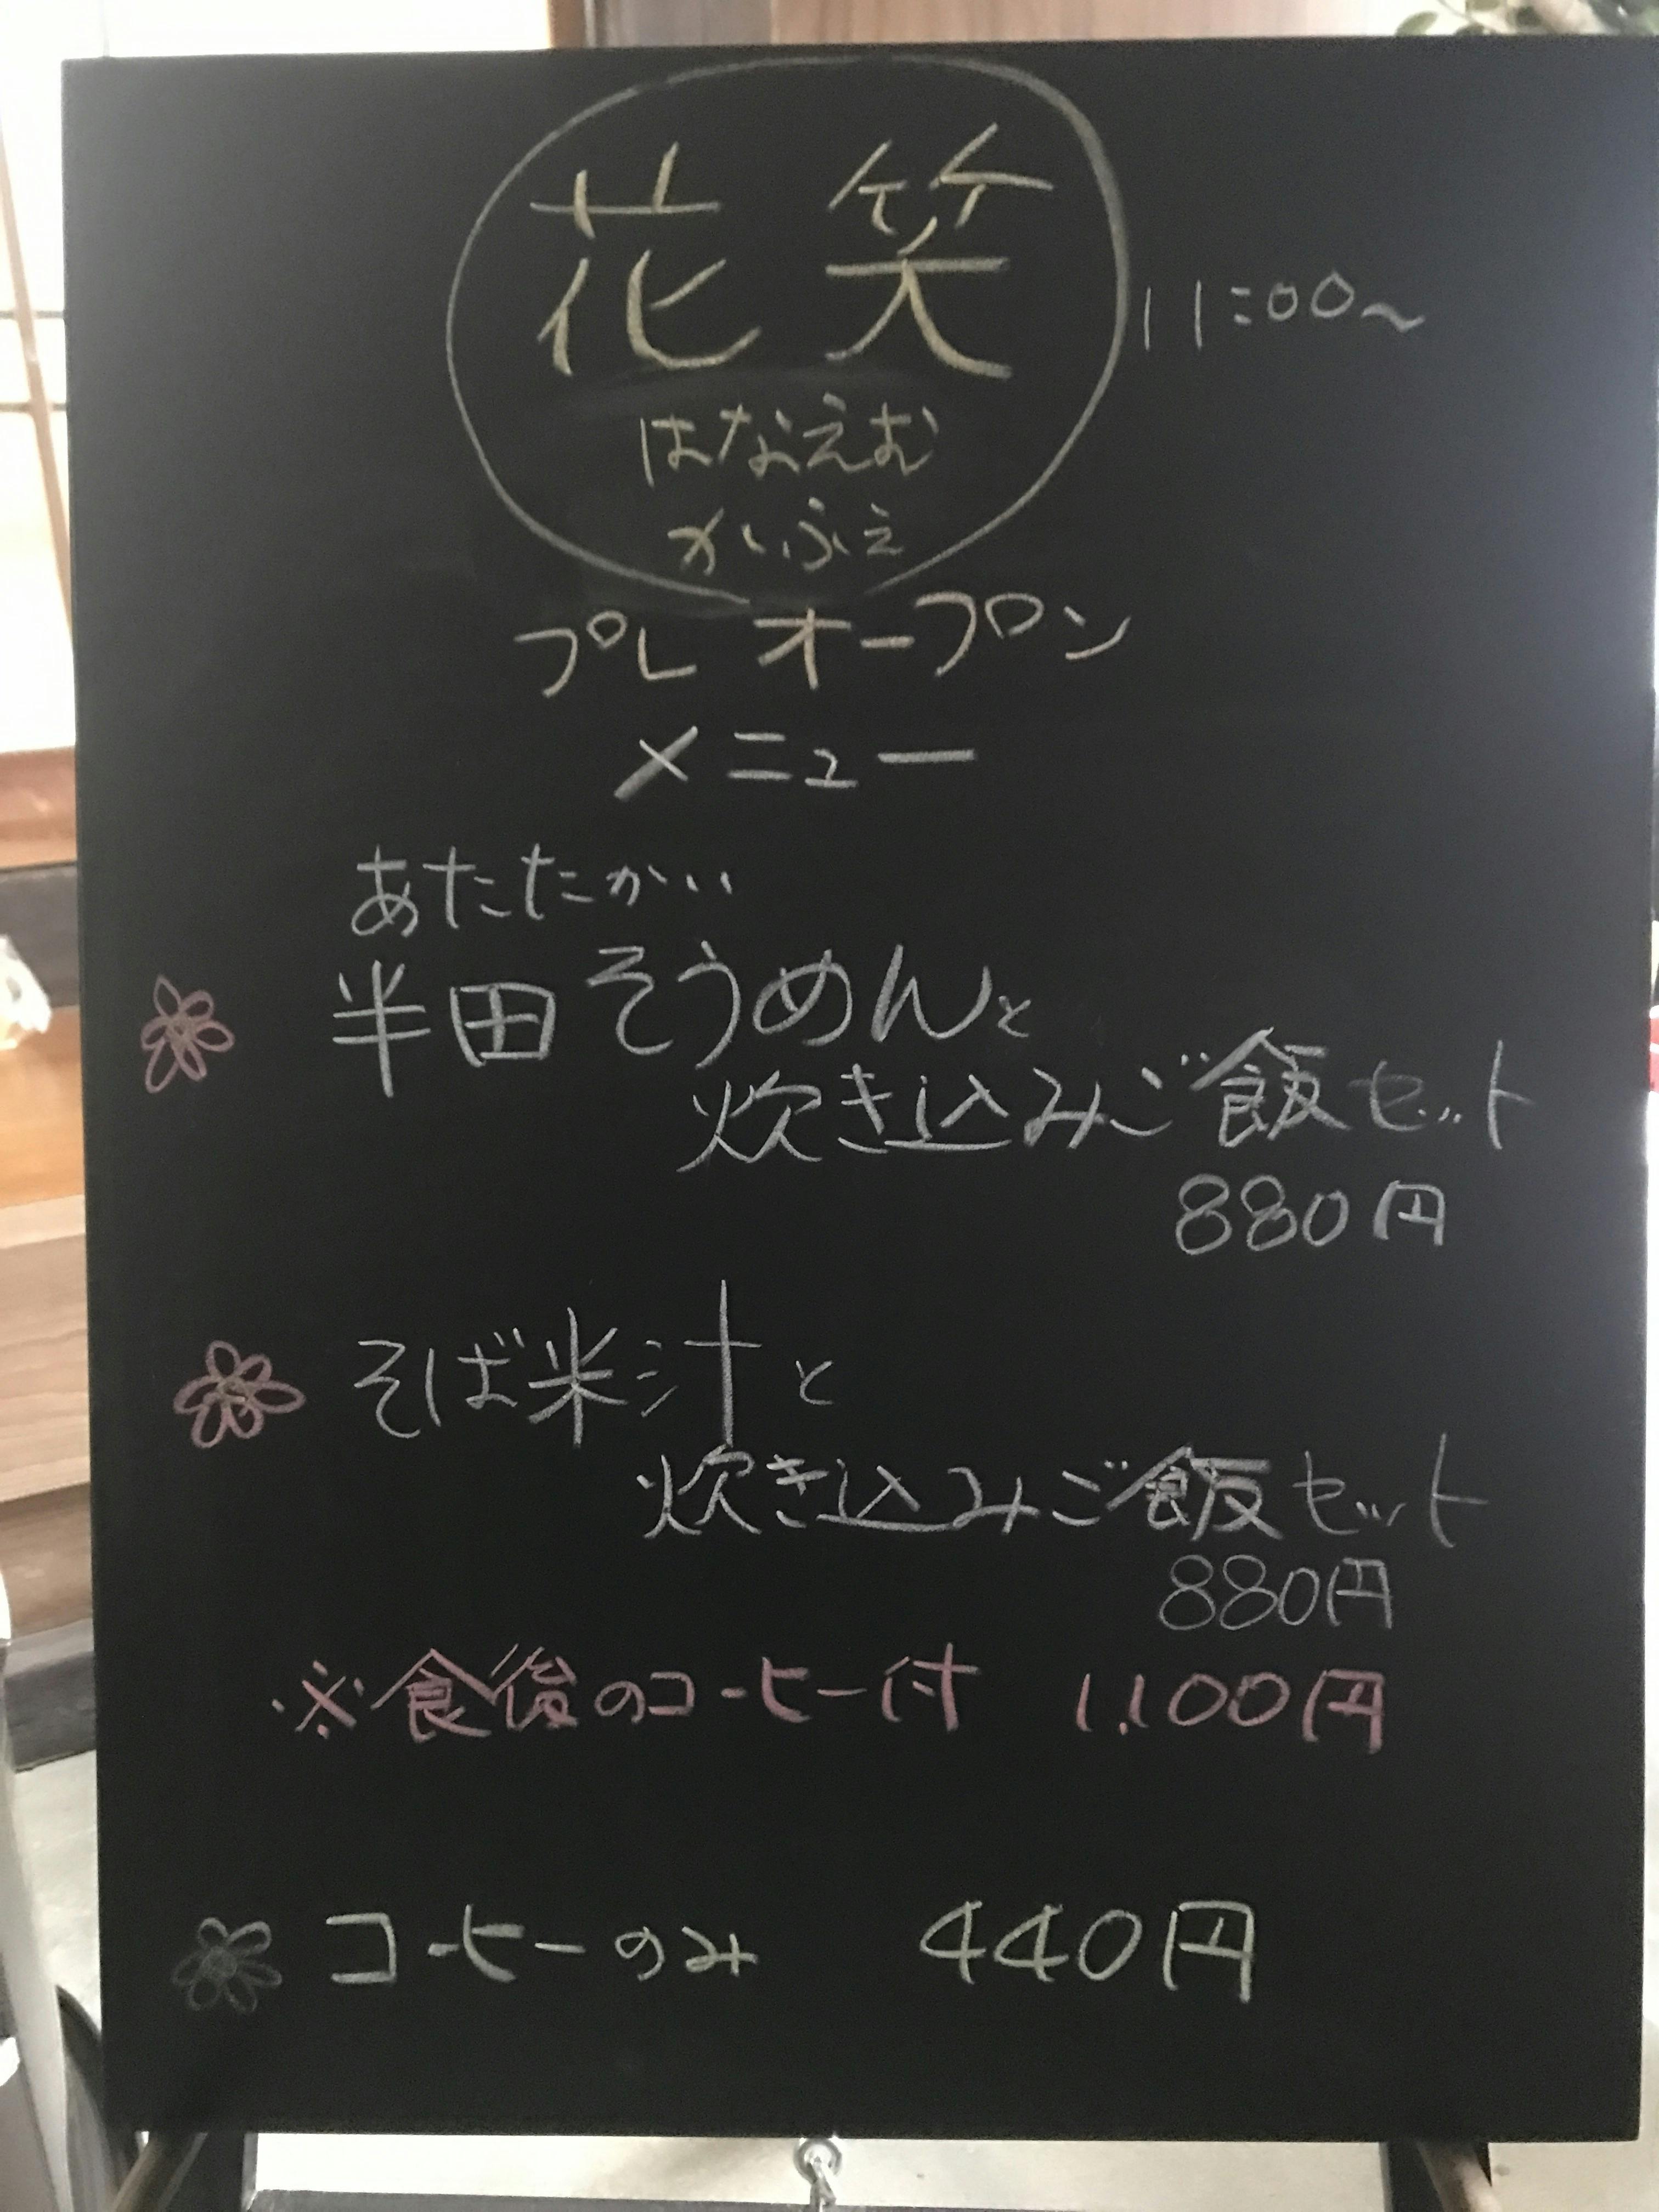 花笑
11:00~
はなえむ
かふぇ
プレオープン
メニュー
あたたかい
半田そうめんと
炊き込みご飯セット
880円
そば米汁と
炊き込みご飯セット
880円
※食後のコーヒー付 1,100円
コーヒーのみ 440円